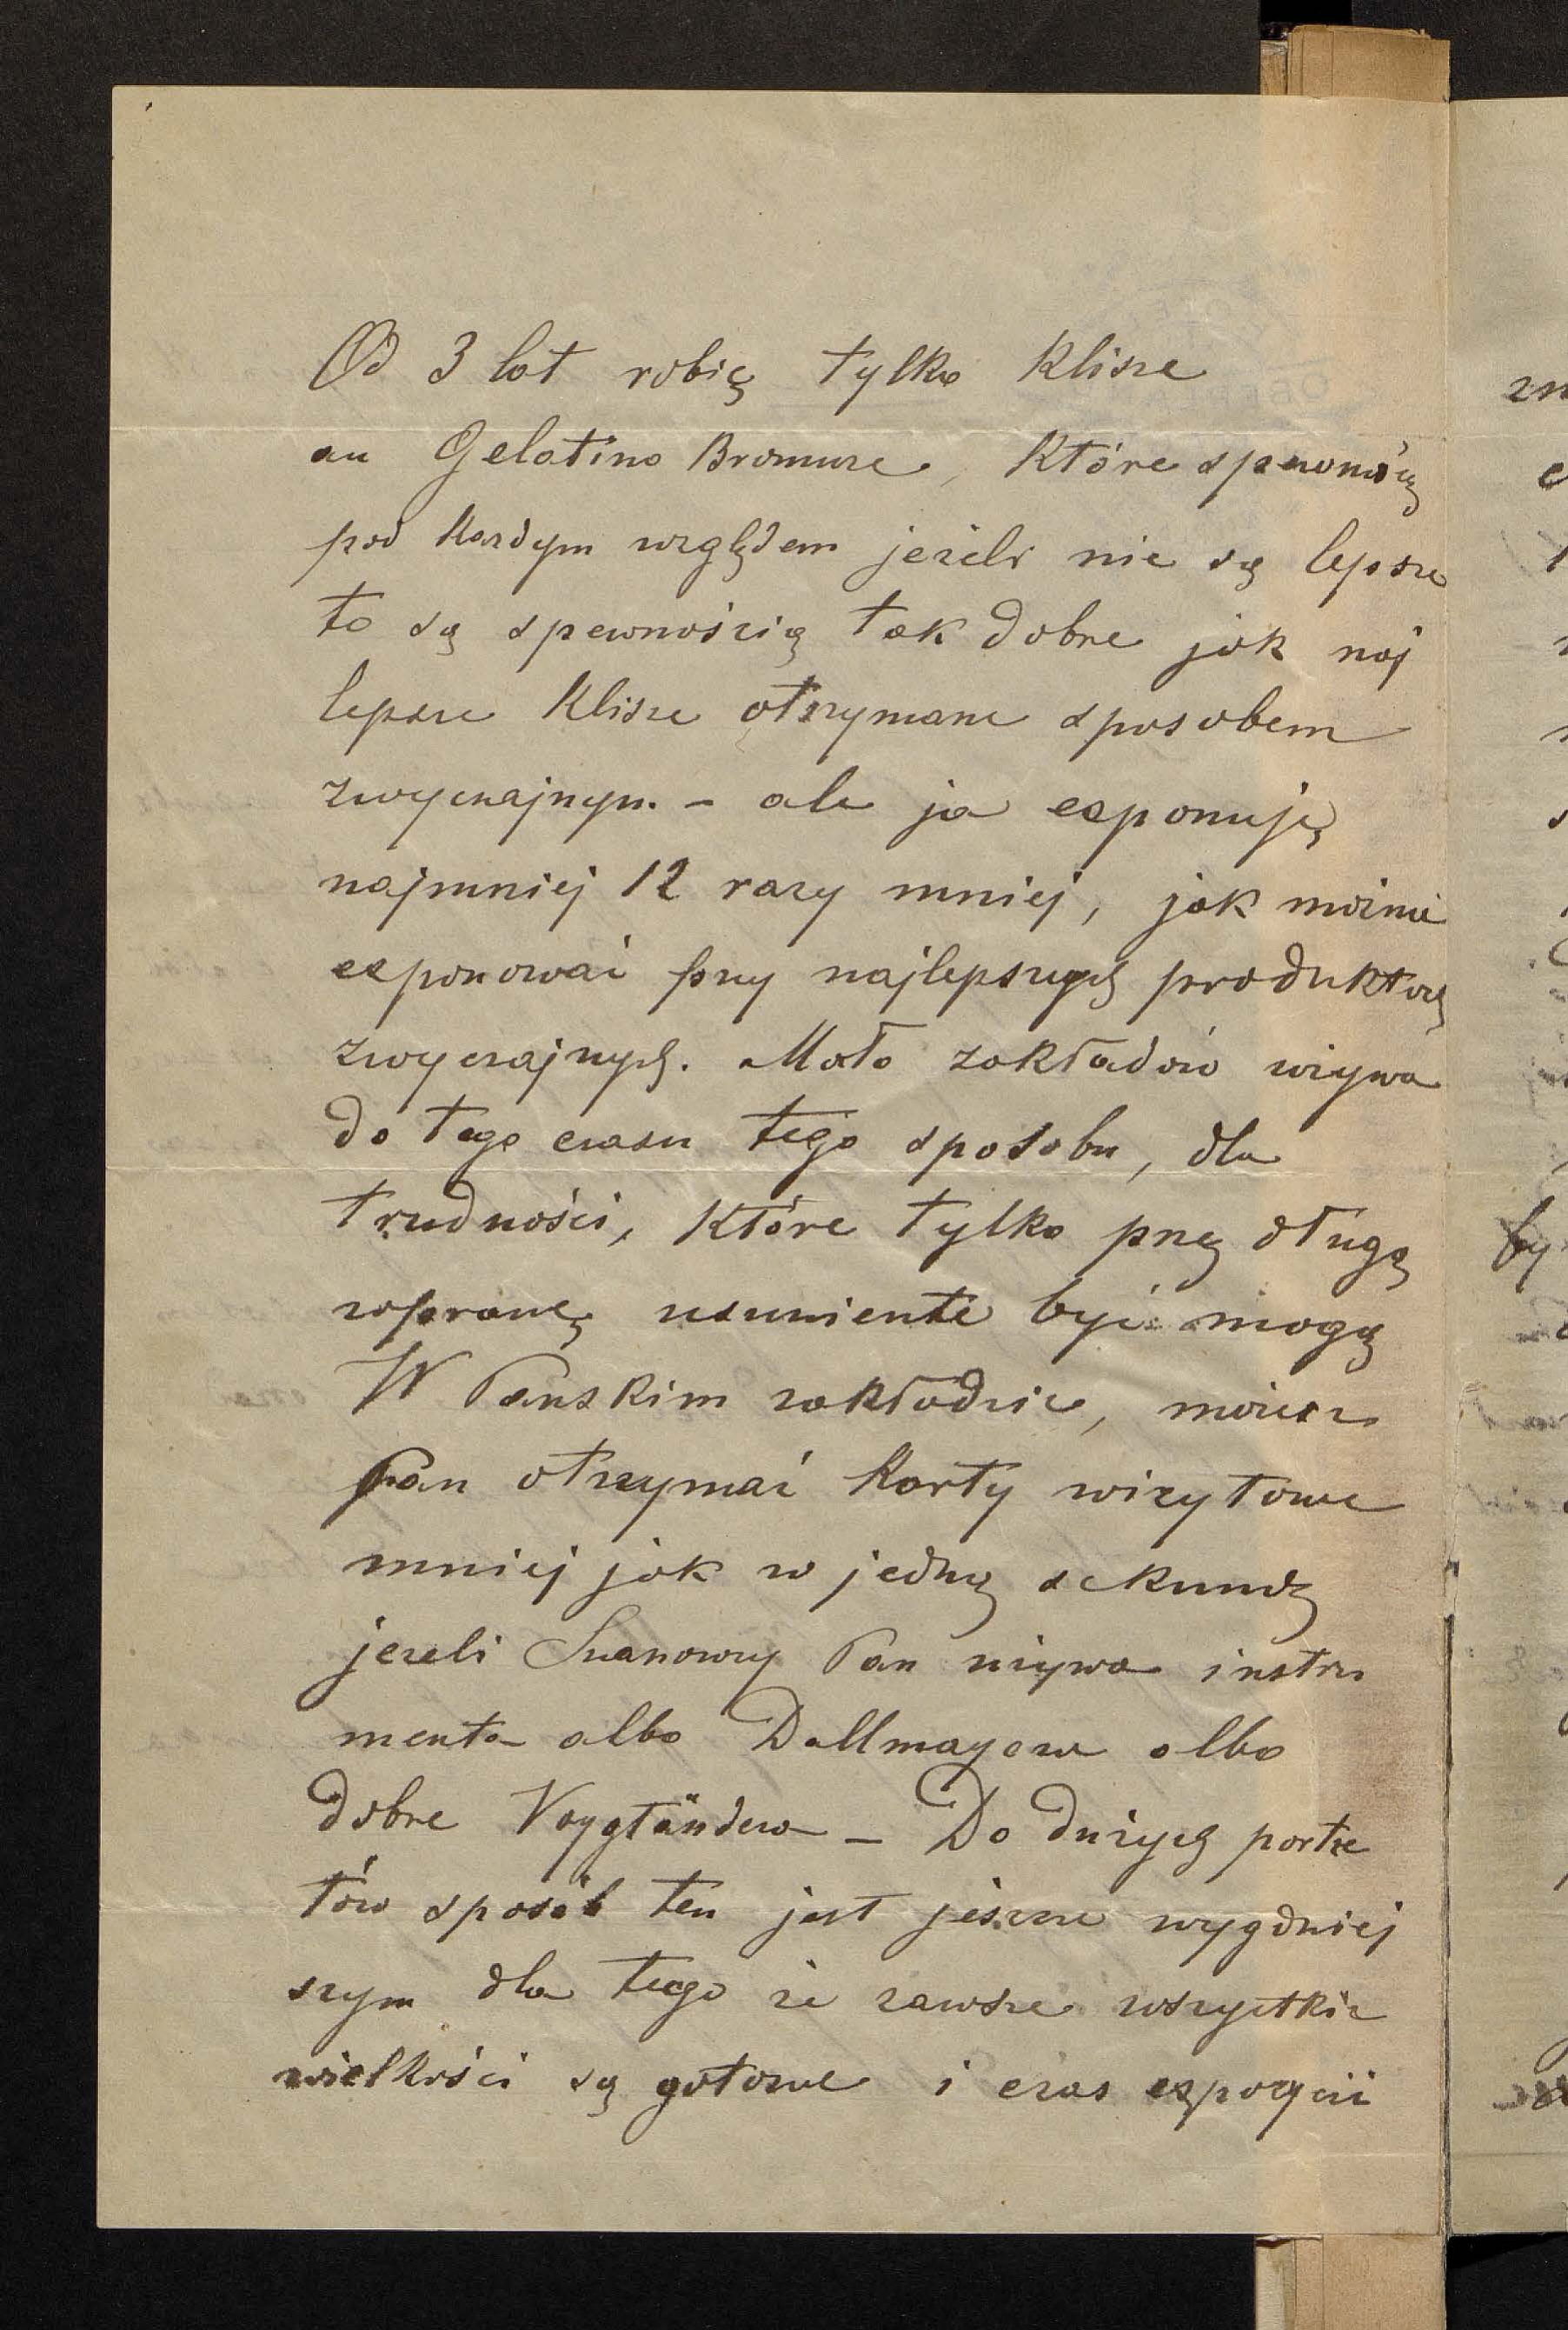 Od 3 lat robię tylko Klisze
au Gelatino Bromure, Które spewnoścą
pod Kazdym względem jezeli nie są lepsze
to są spewnością tak dobre jak naj
lepsze Klisze otrzymane sposobem
zwyczajnym. – ale ja exponuję
najmniej 12 razy mniej, jak możnà
exponować przy najlepszych produktach
zwyczajnych. Mało zakładów używa
do tego czasu tego sposobu, dla
trudności, Które tylko przez długą
wprawę usuniente być mogą
W Panskim zakładzie, możesz
Pan otrzymać Karty wizytowe
mniej jak w jedną sekundę
jezeli Szanowny Pan używa instru
menta albo Dallmayera albo
dobre Voygtländera – Do dużych portre
tów sposób ten jest jeszcze wygdniej
szym dla tego że zawsze wszystkie
wielkości są gotowe i czas expozycii
zn
by